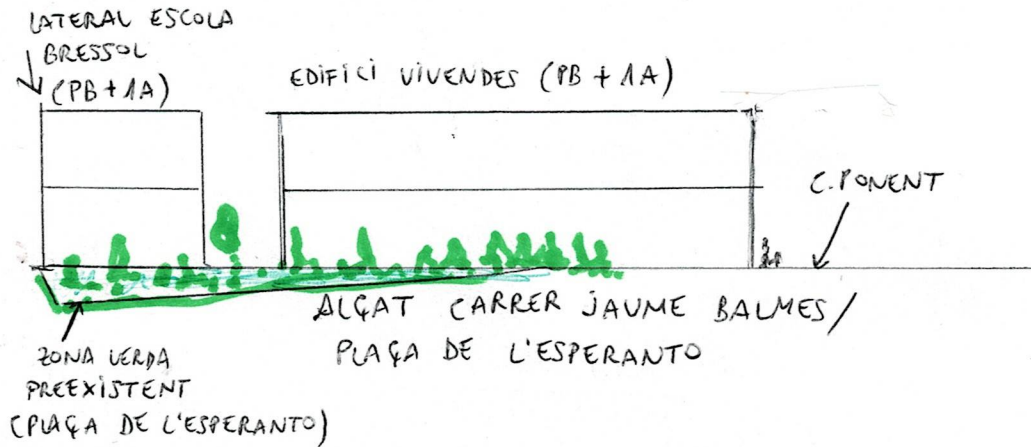 LATERAL ESCOLA
BRESSOL
(PB + 1A)
EDIFICI VIVENDES (PB + 1A)
C. PONENT
ALÇAT CARRER JAUME BALMES /
PLAÇA DE L'ESPERANTO
ZONA VERDA
PREEXISTENT
(PLAÇA DE L'ESPERANTO)